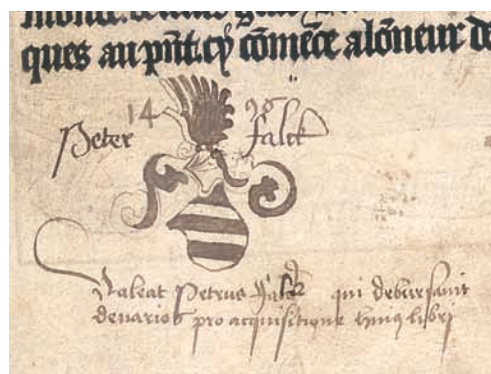 ques au pñt. cy cõmẽce a lõneur de
14 98
Peter Falck
Valeat Petrus Falck qui debursauit
denarios pro acquisitione huius libri